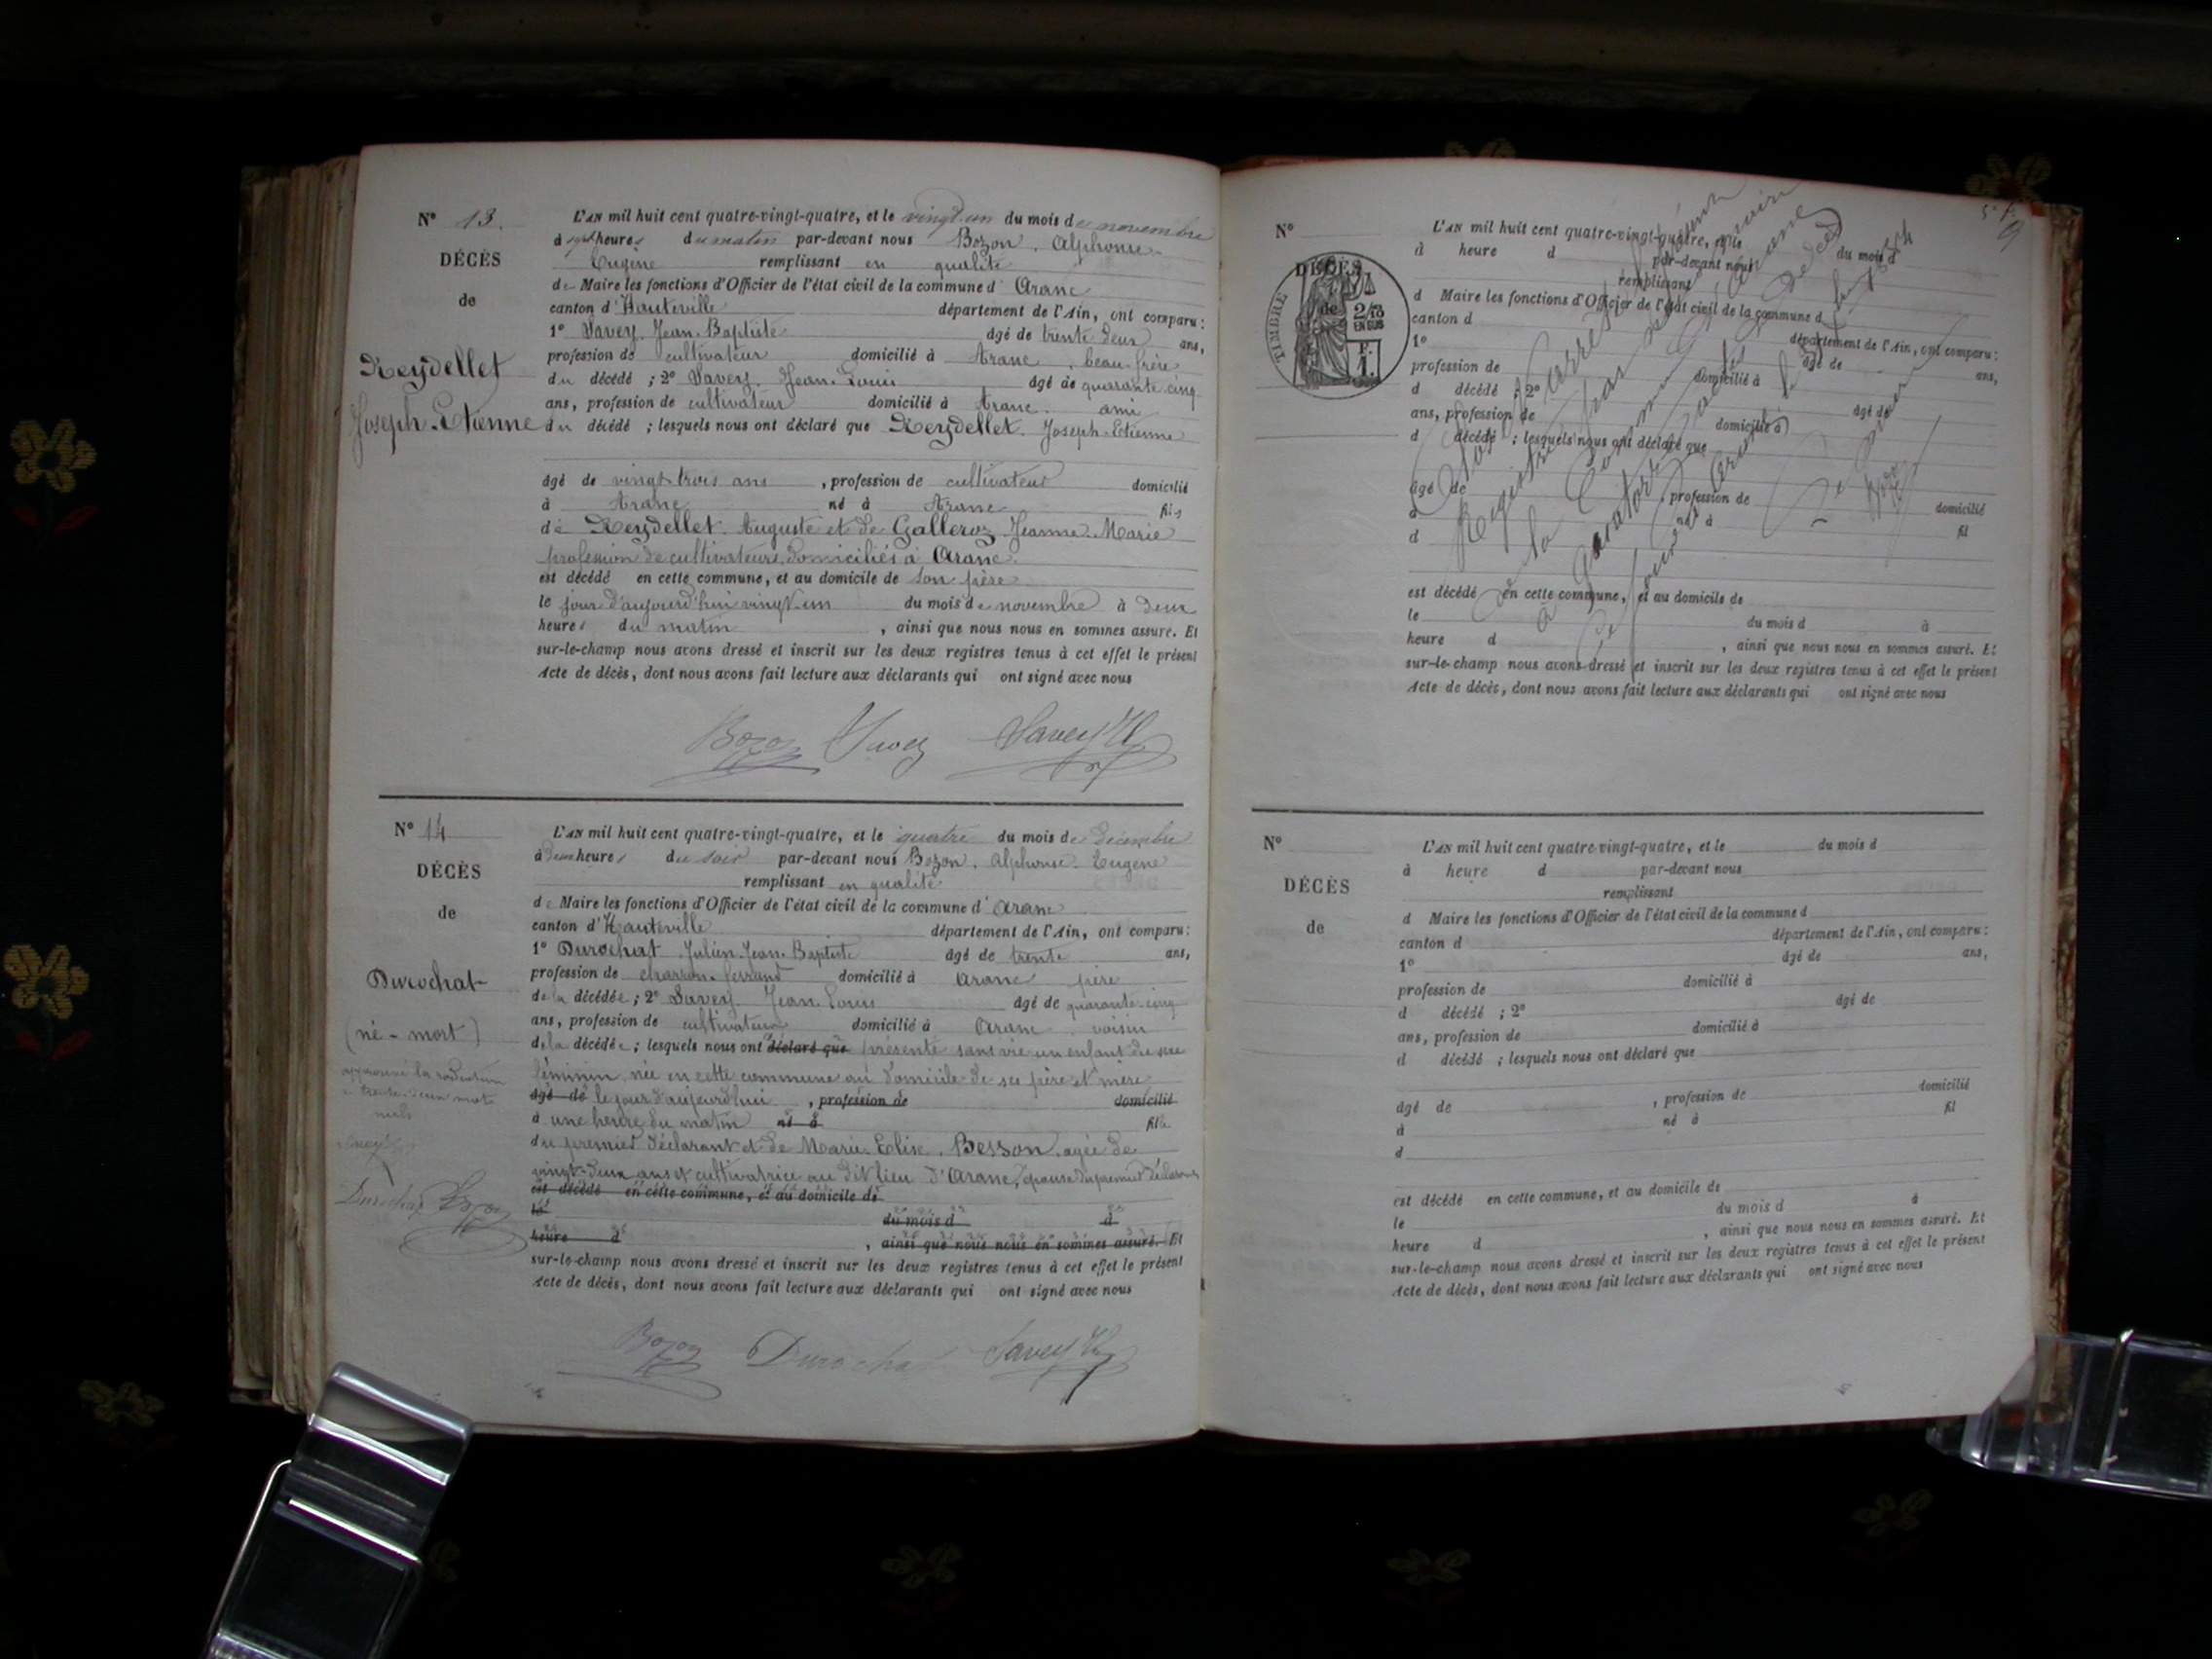 N° 13.
DÉCÈS
de
Reydellet
Joseph-Etienne
L'AN mil huit cent quatre-vingt-quatre, et le vingt un du mois de novembre
à sept heures du matin par-devant nous Bozon, Alphonse-
Eugène remplissant en qualité
de Maire les fonctions d'Officier de l'état civil de la commune d'Aranc
canton d'Hauteville département de l'Ain, ont comparu:
1° Savey, Jean-Baptiste âgé de trente deux ans,
profession de cultivateur domicilié à Aranc, beau-frère
du décédé ; 2° Savey, Jean-Louis âgé de quarante-cinq
ans, profession de cultivateur domicilié à Aranc. ami
du décédé ; lesquels nous ont déclaré que Reydellet, Joseph-Etienne
âgé de vingt-trois ans, profession de cultivateur domicilié
à Aranc né à Aranc fils
de Reydellet Auguste et de Galleroz Jeanne-Marie
profession de cultivateurs, domiciliés à Aranc.
est décédé en cette commune, et au domicile de son père
le jour d'aujourd'hui vingt-un du mois de novembre à deux
heures du matin, ainsi que nous nous en sommes assuré. Et
sur-le-champ nous avons dressé et inscrit sur les deux registres tenus à cet effet le présent
Acte de décès, dont nous avons fait lecture aux déclarants qui ont signé avec nous
Bozon Savey Savey
N° 14
DÉCÈS
de
Durochat
(né-mort)
approuvé la radiation
de trente-deux mots
nuls
Durochat Bozon
L'AN mil huit cent quatre-vingt-quatre, et le quatre du mois de décembre
à deux heures du soir par-devant nous Bozon, Alphonse-Eugène
remplissant en qualité
de Maire les fonctions d'Officier de l'état civil de la commune d'Aranc
canton d'Hauteville département de l'Ain, ont comparu:
1° Durochat Julien-Jean-Baptiste âgé de trente ans,
profession de charron-ferrand domicilié à Aranc père
de la décédée ; 2° Savey, Jean-Louis âgé de quarante-cinq
ans, profession de cultivateur domicilié à Aranc. voisin
de la décédée ; lesquels nous ont déclaré que présenté sans vie un enfant du sexe
féminin, née en cette commune au domicile de ses père et mère
âgé de le jour d'aujourd'hui, profession de domicilié
à une heure du matin né à fille
du premier déclarant et de Marie-Elise Besson, agée de
vingt-deux ans et cultivatrice au dit lieu d'Aranc, épouse du premier déclarant
est décédé en cette commune, et au domicile de
le du mois d à
heure d, ainsi que nous nous en sommes assuré. Et
sur-le-champ nous avons dressé et inscrit sur les deux registres tenus à cet effet le présent
Acte de décès, dont nous avons fait lecture aux déclarants qui ont signé avec nous
Bozon Durochat Savey
N°
DÉCÈS
de
TIMBRE
2/10
EN SUS
L'AN mil huit cent quatre-vingt-quatre, et le du mois d
à heure d par-devant nous
remplissant
d Maire les fonctions d'Officier de l'état civil de la commune d
canton d département de l'Ain, ont comparu:
1° âgé de ans,
profession de domicilié à
d décédé ; 2° âgé de
ans, profession de domicilié à
d décédé ; lesquels nous ont déclaré que
âgé de, profession de domicilié
à né à fil
d
est décédé en cette commune, et au domicile de
le du mois d à
heure d, ainsi que nous nous en sommes assuré. Et
sur-le-champ nous avons dressé et inscrit sur les deux registres tenus à cet effet le présent
Acte de décès, dont nous avons fait lecture aux déclarants qui ont signé avec nous
Clos et arrêté
Registre
la Commune d'Aranc
à quatorze actes de décès
Le Maire
Bozon
N°
DÉCÈS
de
L'AN mil huit cent quatre-vingt-quatre, et le du mois d
à heure d par-devant nous
remplissant
d Maire les fonctions d'Officier de l'état civil de la commune d
canton d département de l'Ain, ont comparu:
1° âgé de ans,
profession de domicilié à
d décédé ; 2° âgé de
ans, profession de domicilié à
d décédé ; lesquels nous ont déclaré que
âgé de, profession de domicilié
à né à fil
d
est décédé en cette commune, et au domicile de
le du mois d à
heure d, ainsi que nous nous en sommes assuré. Et
sur-le-champ nous avons dressé et inscrit sur les deux registres tenus à cet effet le présent
Acte de décès, dont nous avons fait lecture aux déclarants qui ont signé avec nous